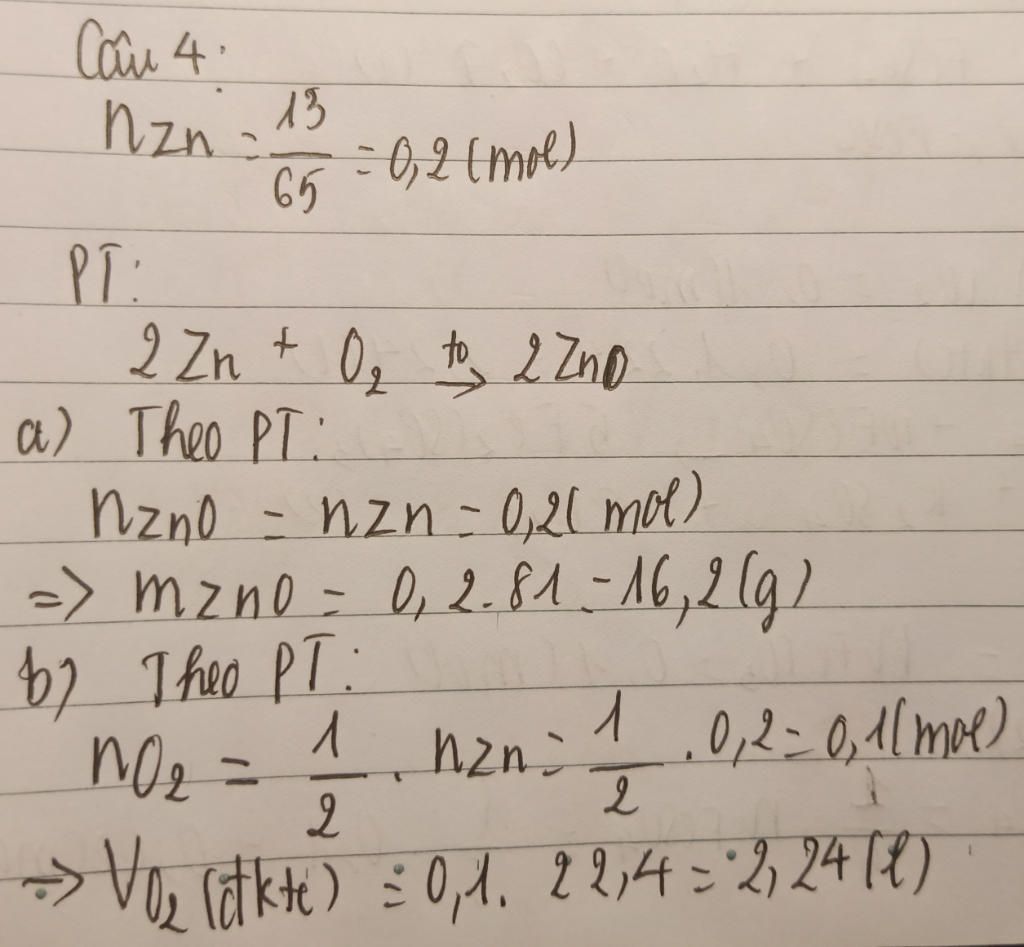 Câu 4:
nZn = 13/65 = 0,2 (mol)
PT:
2 Zn + O₂ t⁰→ 2 ZnO
a) Theo PT:
nZnO = nZn = 0,2 (mol)
=> mZnO = 0,2.81 = 16,2 (g)
b) Theo PT:
nO₂ = 1/2 . nZn = 1/2 . 0,2 = 0,1 (mol)
=> VO₂ (đktc) = 0,1. 22,4 = 2,24 (l)